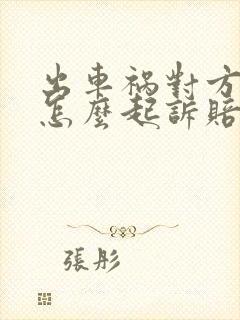 出車禍對方
怎麼起訴賠
張彤